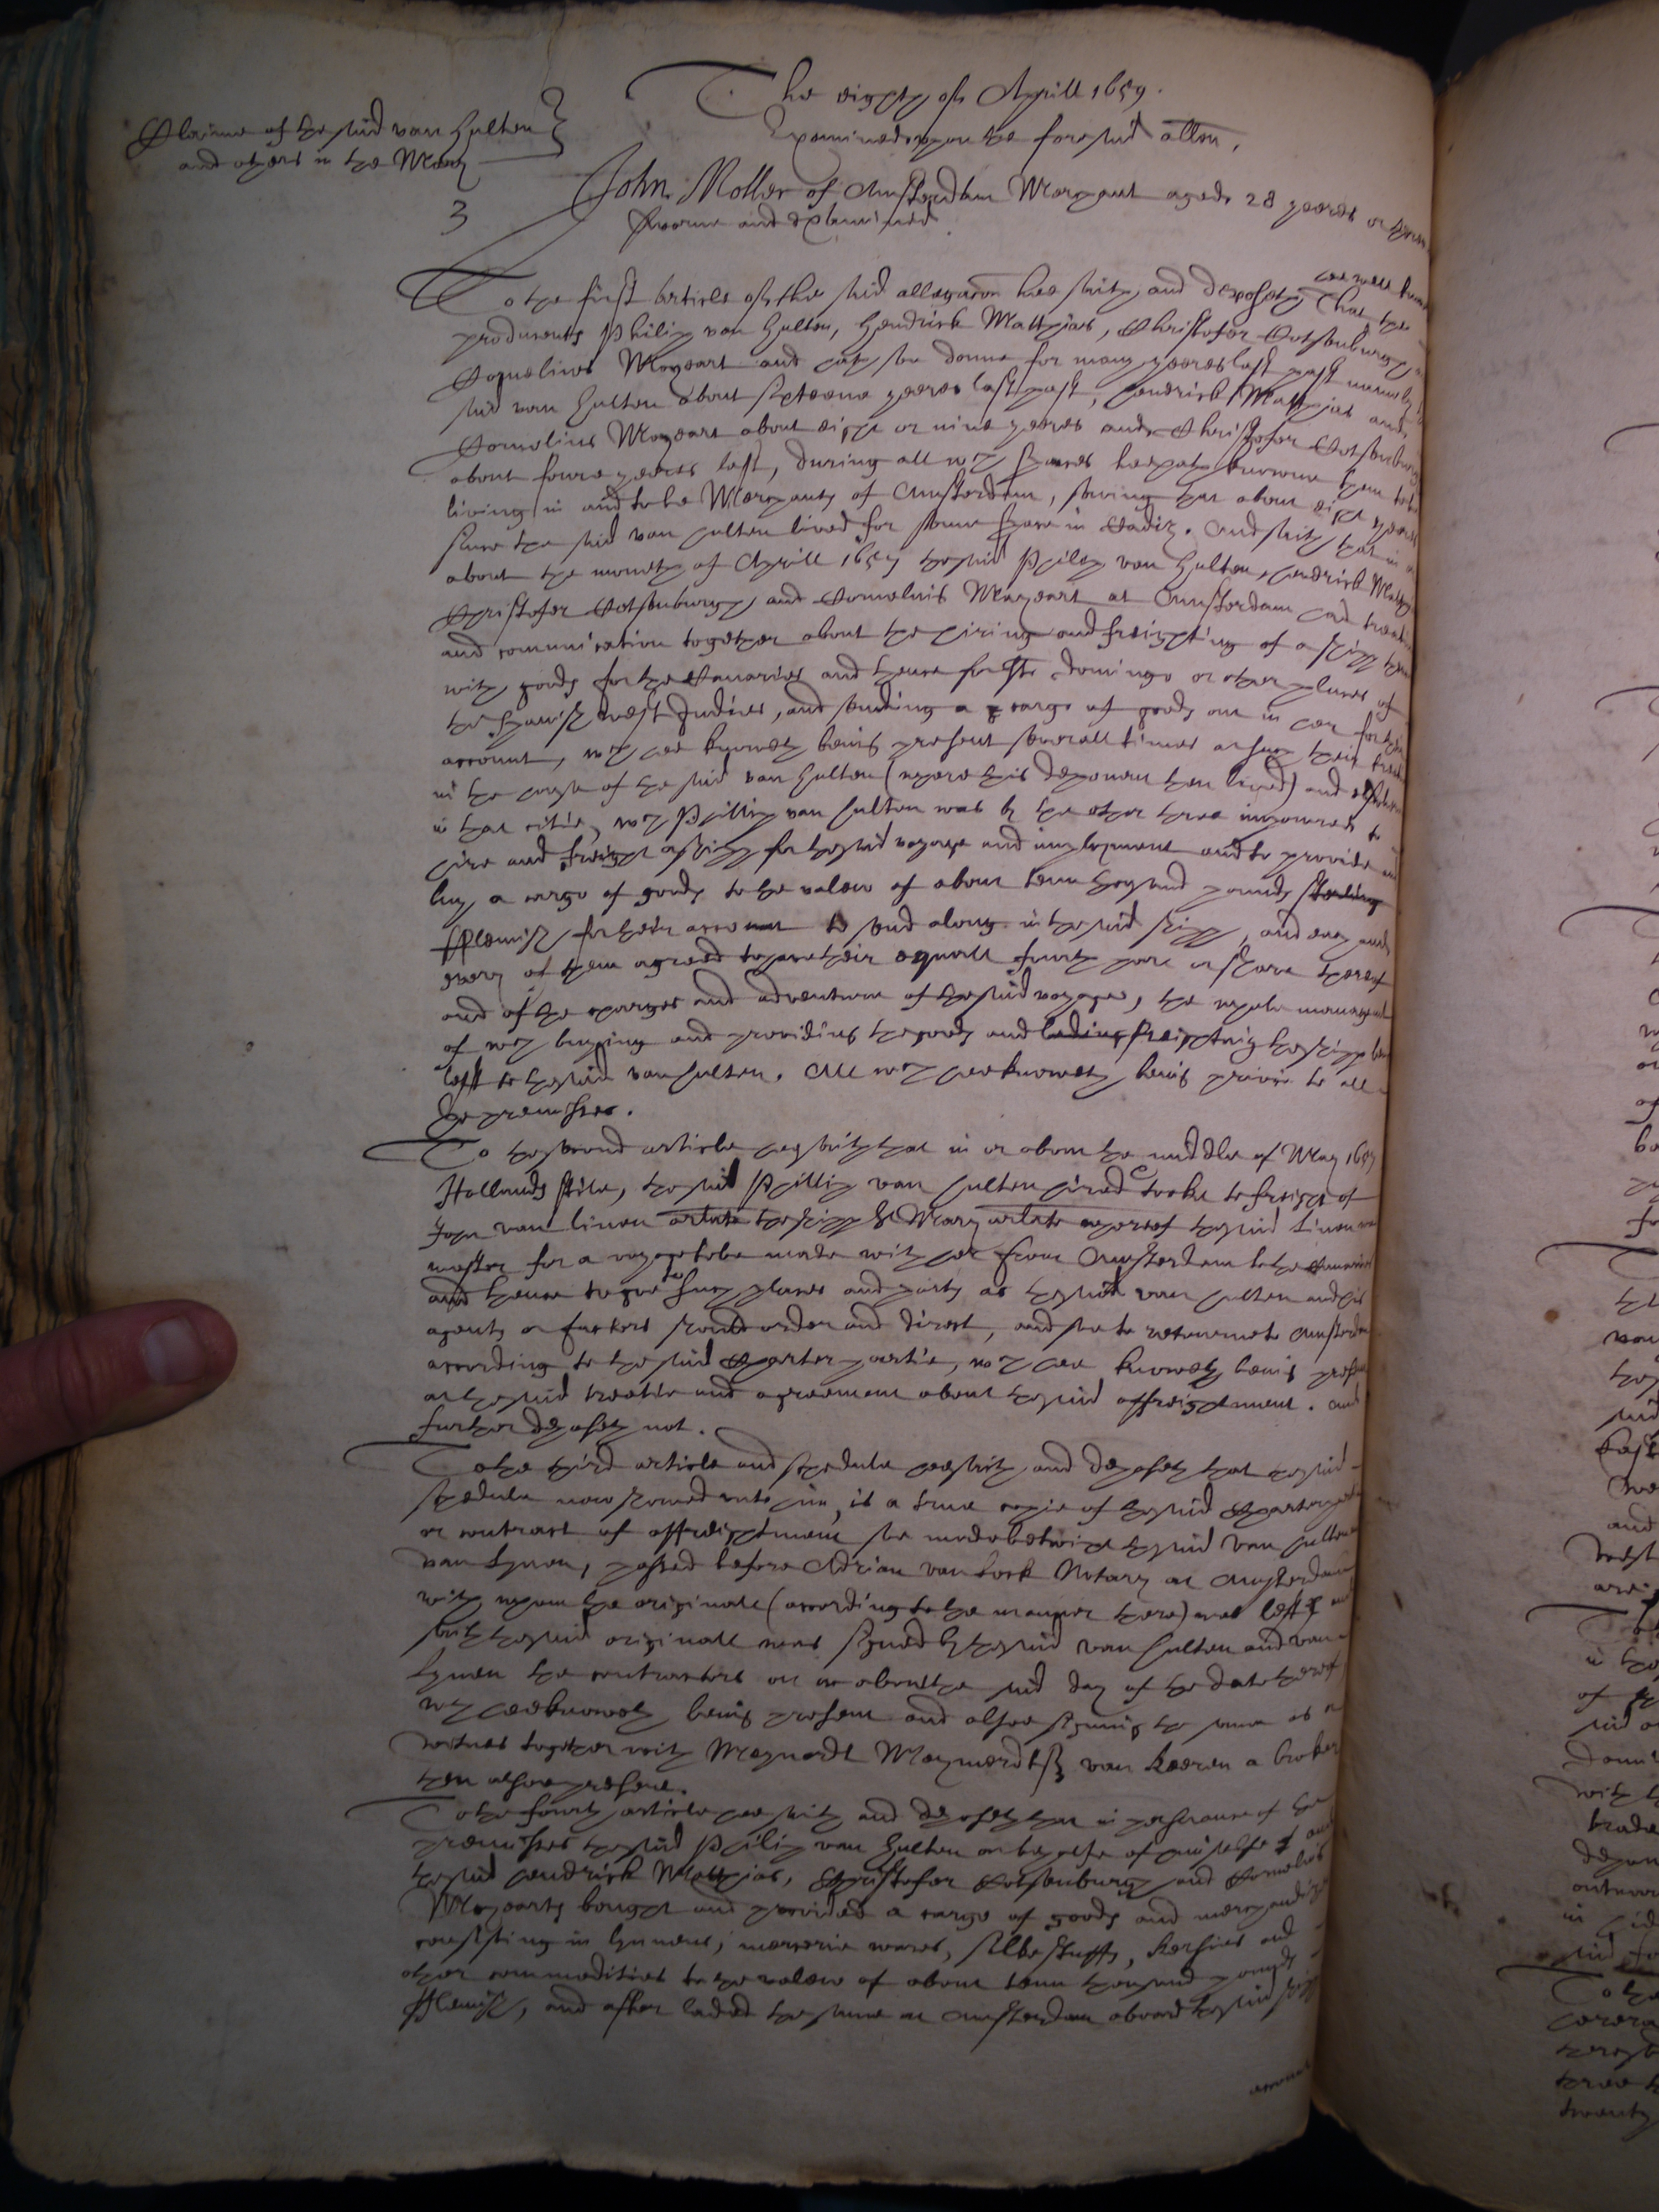 The eighth of Aprill 1659.
Claime of the said van Hulten
and others in the Mary
Examined upon the foresaid allon.
3
John Moller of Amsterdam Merchant aged 28 yeeres or thereabouts
sworne and examined.
To the first article of the said allegacon hee saith and deposeth That hee well knoweth the
producents Philip van Hulten, Hendrick Matthias, Christofer Cotsenburgh
Cornelius Moyaart and hath soe donne for many yeeres last past namely the
said van Hulten about sixteene yeeres last past, Hendrick Matthias and
Cornelius Moyaart about eight or nine yeeres and Christofer Cotsenburgh
about foure yeeres last, during all wch spaces hee hath knowne them to be
living in and to be Merchants of Amsterdam, saving that about eight yeeres
since the said van Hulten lived for some space in Cadiz. And saith that in or
about the moneth of Aprill 1657 the said Philip van Hulten, Hendrick Matthias
Christofer Cotsenburgh and Cornelius Moyaart at Amsterdam had treatie
and communication together about the hiring and freighting of a shipp then
with goods for the Canaries and thence for Sto Domingo or other places of
the Spanish West Indies, and sending a cargo of goods out in her for their
account, wch hee knoweth being present severall times at such their treaties
in the house of the said van Hulten (where this deponent then lived) and elsewhere
in that citie, wch Phillip van Hulten was by the other three impowered to
hire and freight a shipp for the said voyage and imployment and to provide and
buy a cargo of goods to the valew of about tenn thousand pounds sterling
Flemish for their account to send along in the said shipp, and each and
every of them agreed to have their equall fourth part or share thereof
and of the charges and adventure of the said voyage, the whole management
of wch buying and providing the goods and lading freighting the shipp being
left to the said van Hulten. All wch hee knoweth being privie to all
the premisses.
To the second article hee saith that in or about the middle of May 1657
Hollands stile, the said Phillip van Hulten hired & tooke to freight of
John van Linen arlate the shipp the Mary arlate whereof the said Linen was
master for a voyage to be made with her from Amsterdam to the Canaries
and thence to goe to such places and ports as the said van Hulten and his
agents or factors should order and direct, and soe to returne to Amsterdam
according to the said charter partie, wch hee knoweth being present
at the said treatie and agreement about the said affreightment. And
further deposeth not.
To the third article and schedule hee saith and deposeth that the said
schedule now showed unto him, is a true copie of the said charter partie
or contract of affreightment soe made betwixt the said van Hulten and
van Lynen, passed before Adrian van Lock Notary at Amsterdam
with whom the originall (according to the manner there) was left and
saith the said originall was signed by the said van Hulten and van
Lynen the contractors on or about the said day of the date thereof
wch hee knoweth being present and alsoe signing the same as a
witnes together with Meynardt Meynerdtsz van Keeren a broker
then alsoe present.
To the fourth article hee saith and deposeth that in pursuance of the
premisses the said Philip van Hulten on behalfe of himselfe and
the said Hendrick Matthias, Christofer Cotsenburgh and Cornelius
Moyaarts bought and provided a cargo of goods and merchandizes
consisting in lynnens, mercerie wares, silke stuffs, kersies and
other commodities to the valew of about tenn thousand pounds
Flemish, and after laded the same at Amsterdam aboard the said shipp